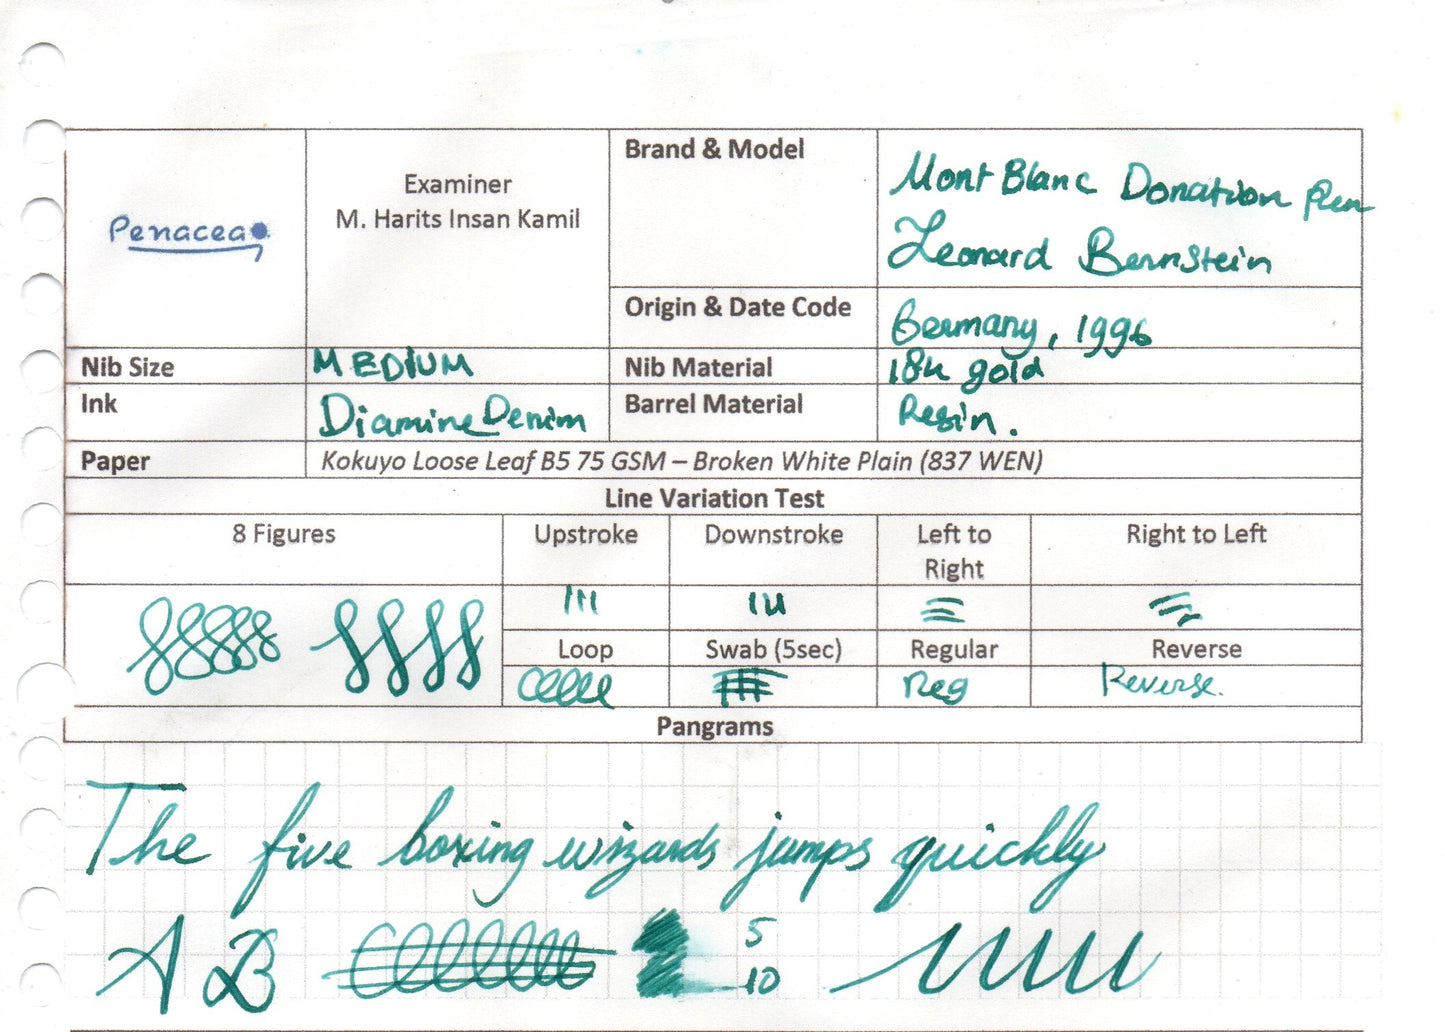 Penacea
Examiner
M. Harits Insan Kamil
Brand & Model
Mont Blanc Donation Pen
Leonard Bernstein
Origin & Date Code
Germany, 1996
Nib Size
MEDIUM
Nib Material
18k gold
Ink
Diamine Denim
Barrel Material
Resin.
Paper
Kokuyo Loose Leaf B5 75 GSM – Broken White Plain (837 WEN)
Line Variation Test
8 Figures
Upstroke
Downstroke
Left to
Right
Right to Left
Loop
Swab (5sec)
Regular
Reverse
Reg
Reverse.
Pangrams
The five boxing wizards jumps quickly
A B
5
10